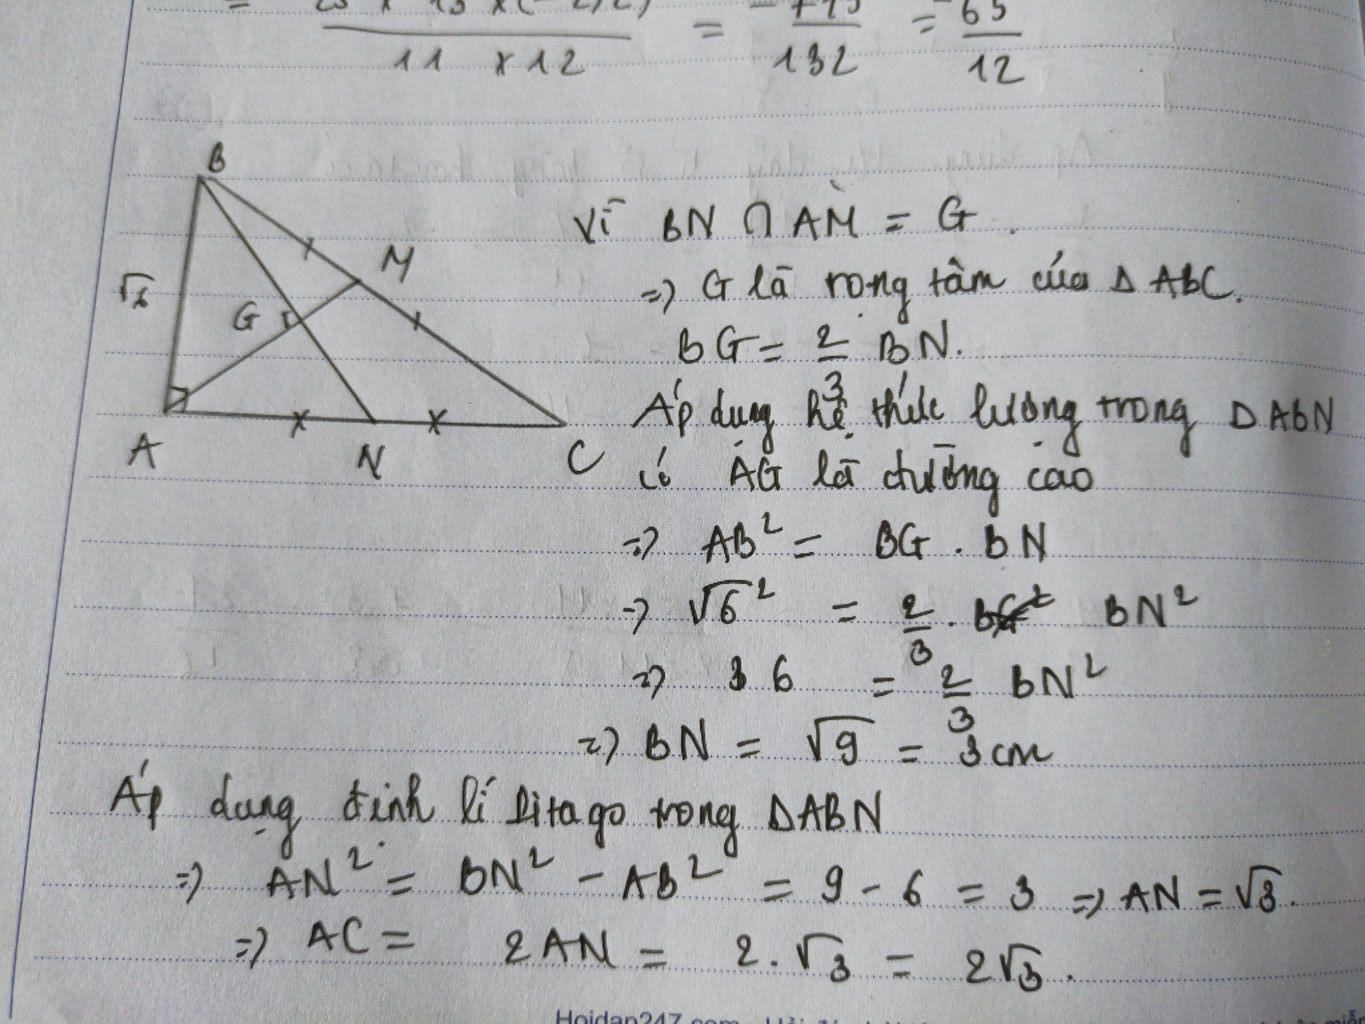 11 × 12 = 132 = 12
B
√6
M
G
A
N
C
Vì BN ∩ AM = G.
=> G là rọng tâm của Δ ABC.
BG = 2/3 BN.
Áp dụng hệ thức lương trong Δ ABN
có AG là đường cao
=> AB² = BG . BN
=> √6² = 2/3 . BN²
=> 36 = 2/3 BN²
=> BN = √9 = 3cm
Áp dụng định lí Pitago trong ΔABN
=> AN² = BN² - AB² = 9 - 6 = 3 => AN = √3.
=> AC = 2AN = 2.√3 = 2√3.
Hoidap247.com